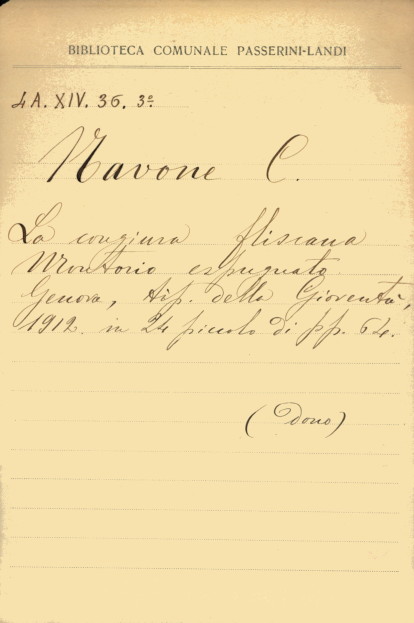 BIBLIOTECA COMUNALE PASSERINI-LANDI
4A. XIV. 36. 3º.
Navone C.
La congiura fliscana
Montorio espugnato
Genova, tip. della Gioventù,
1912. in 24 piccolo di pp. 64.
(Dono)